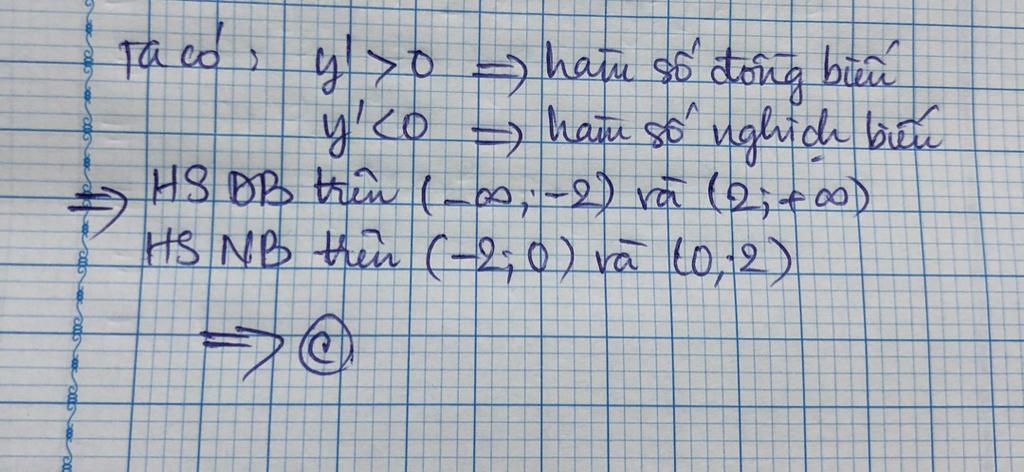 Ta có: y' > 0 => hàm số đồng biến
y' < 0 => hàm số nghịch biến
=> HS ĐB trên (-∞; -2) và (2; +∞)
HS NB trên (-2; 0) và (0; 2)
=> C